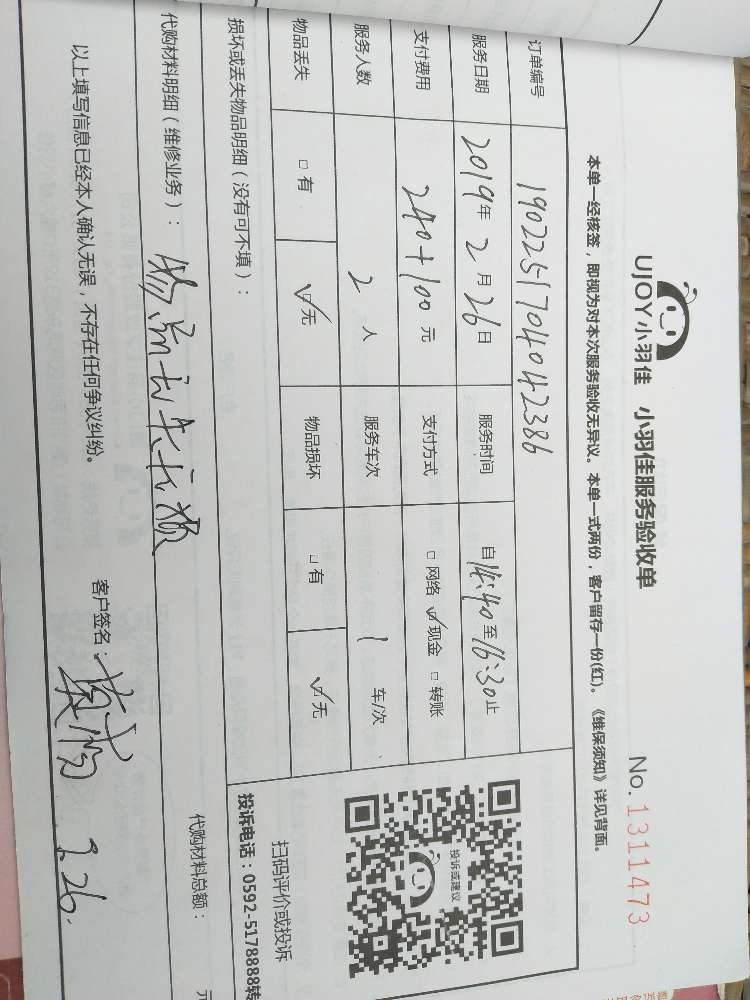 UJOY小羽佳 小羽佳服务验收单
No.1311473
本单一经核签，即视为对本次服务验收无异议。本单一式两份，客户留存一份(红)。《维保须知》详见背面。
订单编号 1902251704042386
服务日期 2019年2月26日 服务时间 自14:40至16:30止
支付费用 240+100元 支付方式 □网络 ☑现金 □转账
服务人数 2人 服务车次 1车/次
物品丢失 □有 ☑无 物品损坏 □有 ☑无
投诉或建议
扫码评价或投诉
投诉电话：0592-5178888转
损坏或丢失物品明细（没有可不填）：
代购材料明细（维修业务）：
代购材料总额： 元
以上填写信息已经本人确认无误，不存在任何争议纠纷。
客户签名： 2.26.